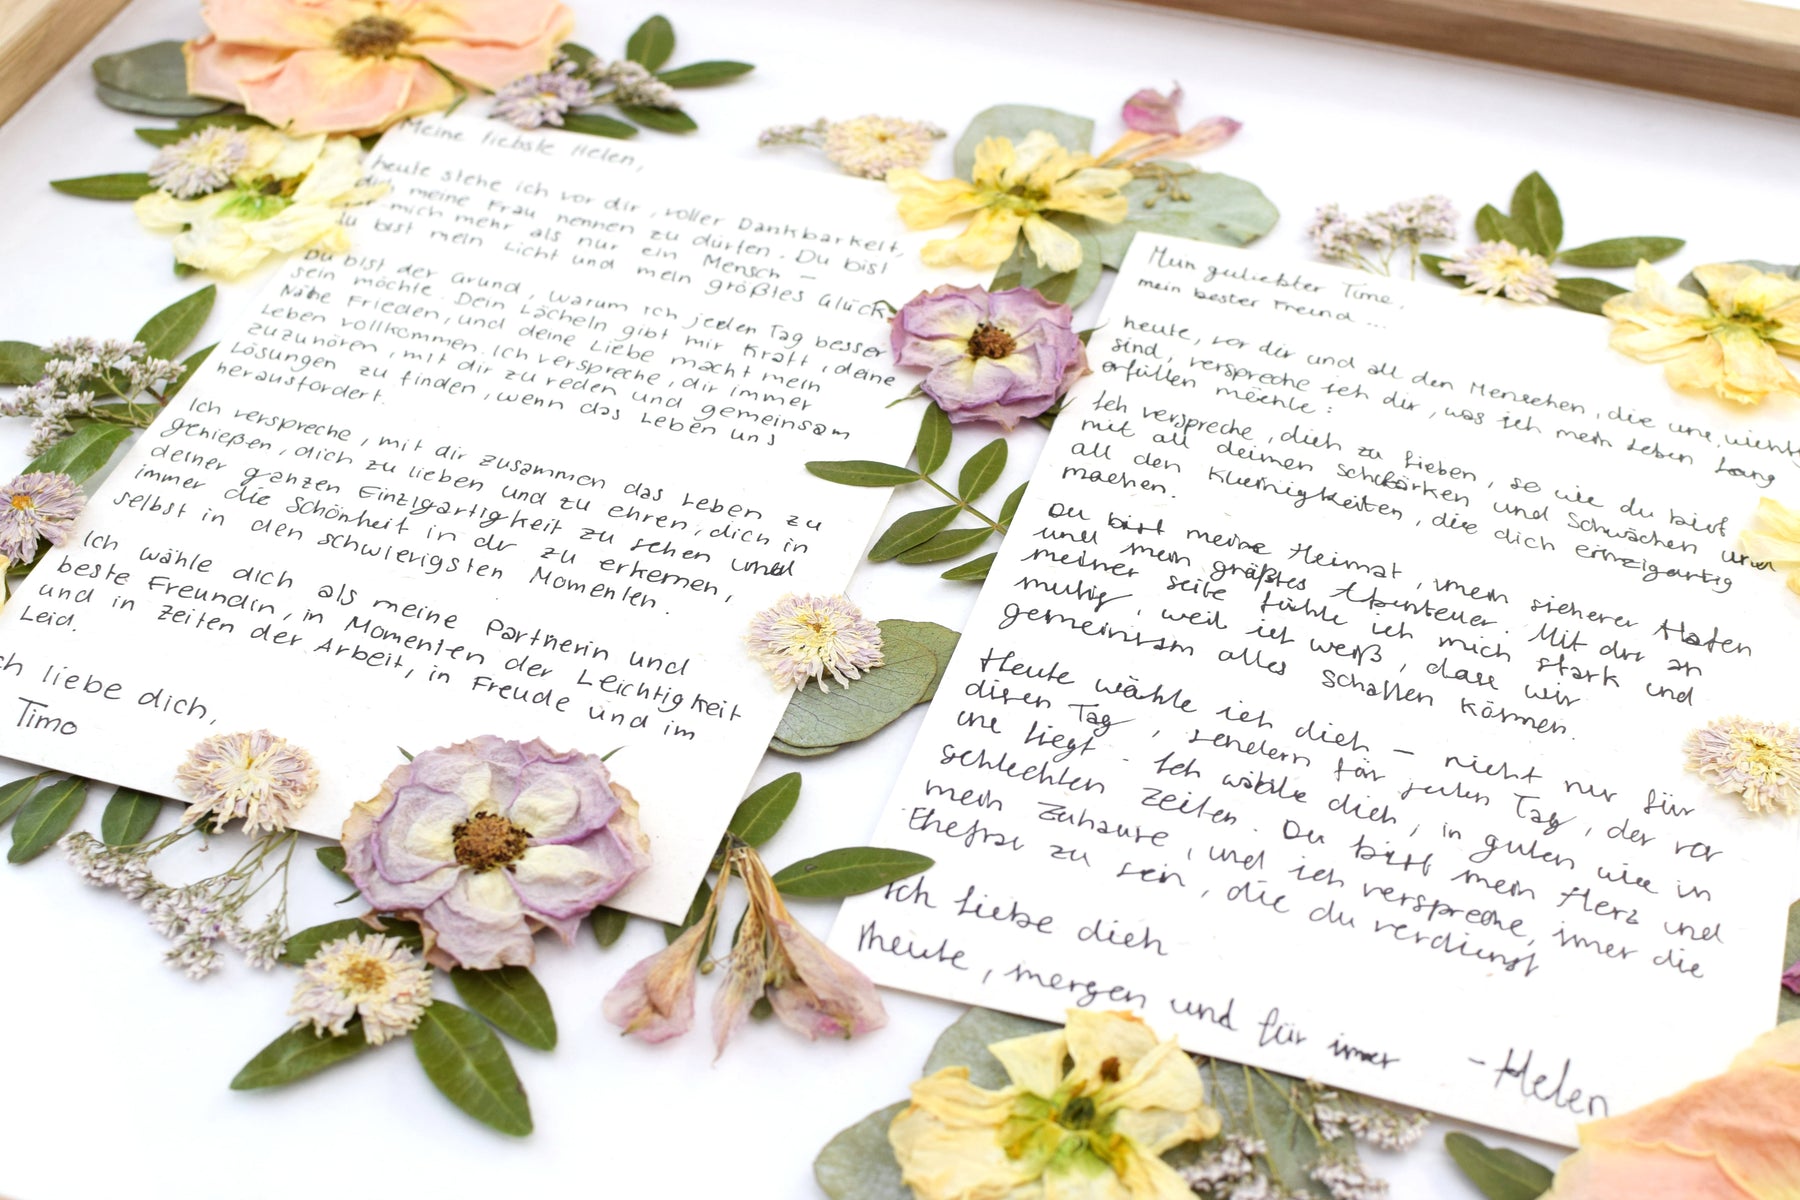 Meine liebste Helen,
heute stehe ich vor dir, voller Dankbarkeit,
dich meine Frau nennen zu dürfen. Du bist
für mich mehr als nur ein Mensch –
du bist mein Licht und mein größtes Glück.
Du bist der Grund, warum ich jeden Tag besser
sein möchte. Dein Lächeln gibt mir Kraft, deine
Nähe Frieden, und deine Liebe macht mein
Leben vollkommen. Ich verspreche, dir immer
zuzuhören, mit dir zu reden und gemeinsam
Lösungen zu finden, wenn das Leben uns
herausfordert.
Ich verspreche, mit dir zusammen das Leben zu
genießen, dich zu lieben und zu ehren, dich in
deiner ganzen Einzigartigkeit zu sehen und
immer die Schönheit in dir zu erkennen,
selbst in den schwierigsten Momenten.
Ich wähle dich als meine Partnerin und
beste Freundin, in Momenten der Leichtigkeit
und in Zeiten der Arbeit, in Freude und im
Leid.
ch liebe dich,
Timo
Mein geliebter Timo,
mein bester Freund ...
heute, vor dir und all den Menschen, die uns wichtig
sind, verspreche ich dir, was ich mein Leben lang
erfüllen möchte:
Ich verspreche, dich zu lieben, so wie du bist
mit all deinen Stärken und Schwächen und
all den Kleinigkeiten, die dich einzigartig
machen.
Du bist meine Heimat, mein sicherer Hafen
und mein größtes Abenteuer. Mit dir an
meiner Seite fühle ich mich stark und
mutig, weil ich weiß, dass wir
gemeinsam alles schaffen können.
Heute wähle ich dich – nicht nur für
disen Tag, sondern für jeden Tag, der vor
uns liegt. Ich wähle dich, in guten wie in
schlechten Zeiten. Du bist mein Herz und
mein Zuhause, und ich verspreche, imer die
Ehefrau zu sein, die du verdienst
Ich liebe dich
Heute, morgen und für immer – Helen